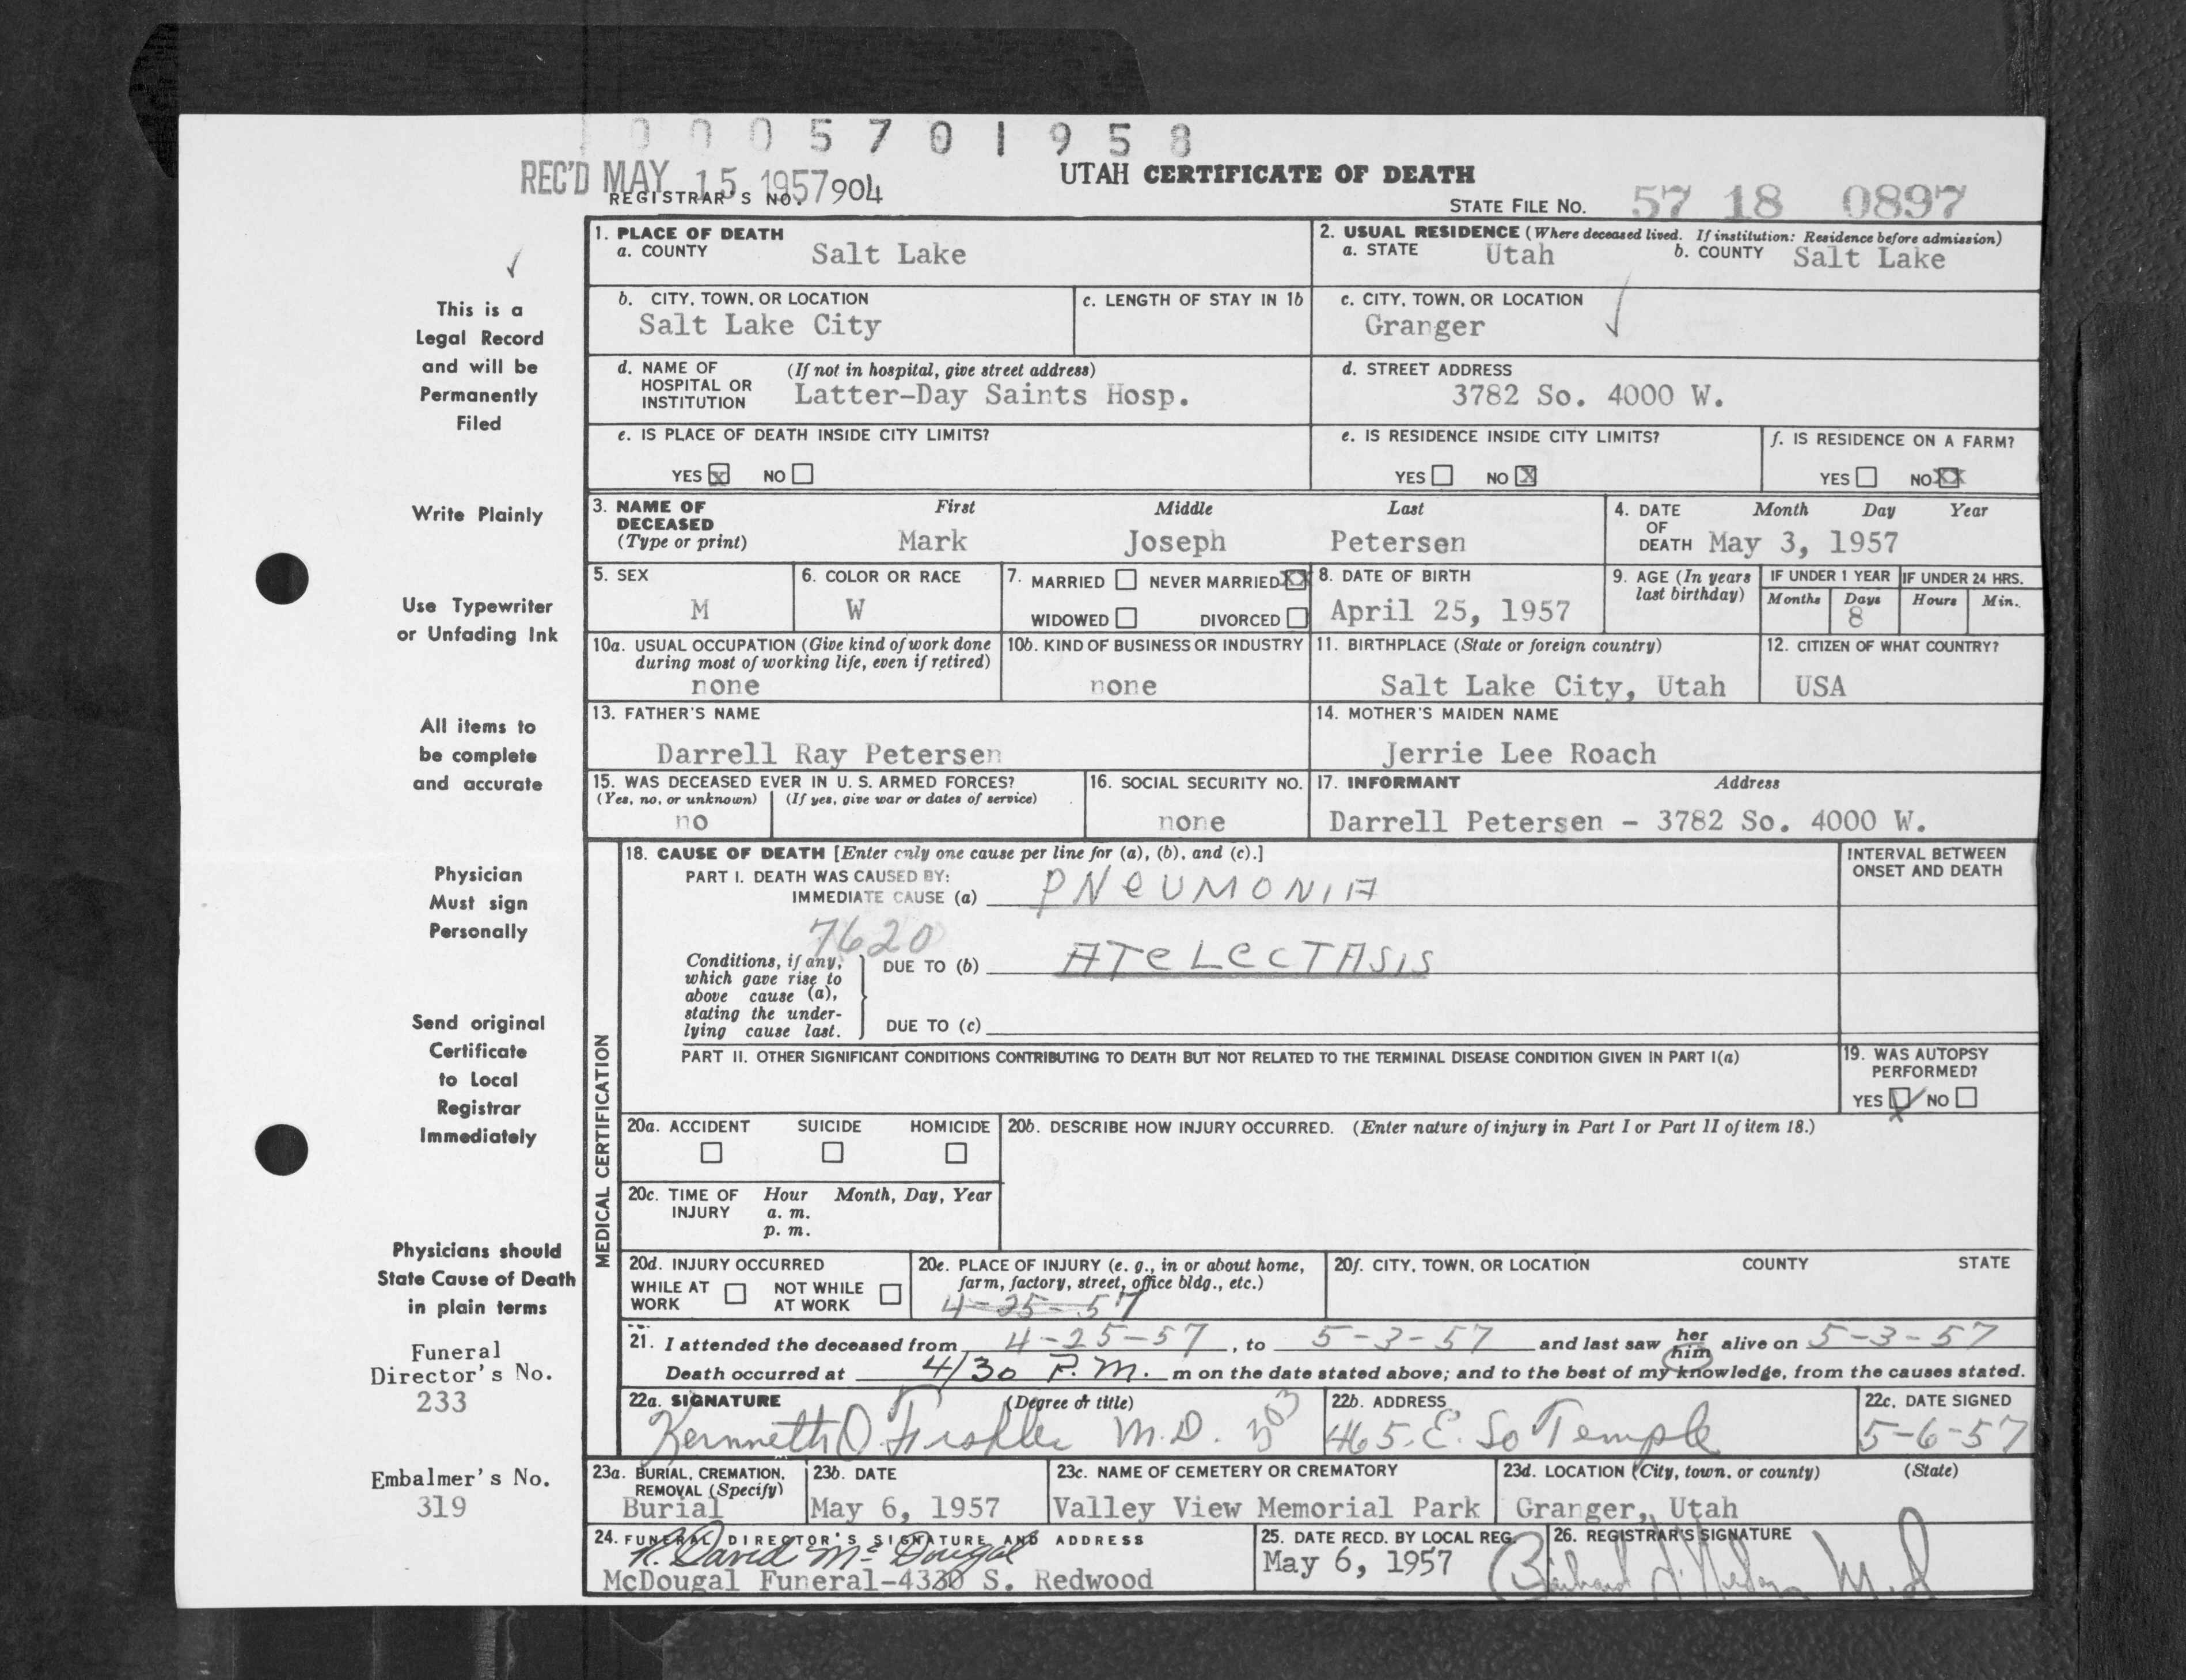 0 0 0 5 7 0 1 9 5 8
REC'D MAY 15 1957
REGISTRAR'S NO. 904
UTAH CERTIFICATE OF DEATH
STATE FILE NO. 57 18 0897
1. PLACE OF DEATH
a. COUNTY Salt Lake
2. USUAL RESIDENCE (Where deceased lived. If institution: Residence before admission)
a. STATE Utah b. COUNTY Salt Lake
b. CITY, TOWN, OR LOCATION
Salt Lake City
c. LENGTH OF STAY IN 1b
c. CITY, TOWN, OR LOCATION
Granger
d. NAME OF HOSPITAL OR INSTITUTION (If not in hospital, give street address)
Latter-Day Saints Hosp.
d. STREET ADDRESS
3782 So. 4000 W.
e. IS PLACE OF DEATH INSIDE CITY LIMITS?
YES X NO
e. IS RESIDENCE INSIDE CITY LIMITS?
YES NO X
f. IS RESIDENCE ON A FARM?
YES NO XX
3. NAME OF DECEASED (Type or print)
First Middle Last
Mark Joseph Petersen
4. DATE OF DEATH Month Day Year
May 3, 1957
5. SEX
M
6. COLOR OR RACE
W
7. MARRIED NEVER MARRIED XX
WIDOWED DIVORCED
8. DATE OF BIRTH
April 25, 1957
9. AGE (In years last birthday)
IF UNDER 1 YEAR IF UNDER 24 HRS.
Months Days Hours Min.
8
10a. USUAL OCCUPATION (Give kind of work done during most of working life, even if retired)
none
10b. KIND OF BUSINESS OR INDUSTRY
none
11. BIRTHPLACE (State or foreign country)
Salt Lake City, Utah
12. CITIZEN OF WHAT COUNTRY?
USA
13. FATHER'S NAME
Darrell Ray Petersen
14. MOTHER'S MAIDEN NAME
Jerrie Lee Roach
15. WAS DECEASED EVER IN U. S. ARMED FORCES?
(Yes, no, or unknown) (If yes, give war or dates of service)
no
16. SOCIAL SECURITY NO.
none
17. INFORMANT Address
Darrell Petersen - 3782 So. 4000 W.
MEDICAL CERTIFICATION
18. CAUSE OF DEATH [Enter only one cause per line for (a), (b), and (c).]
INTERVAL BETWEEN ONSET AND DEATH
PART I. DEATH WAS CAUSED BY:
IMMEDIATE CAUSE (a) PNEUMONIA
7620
Conditions, if any, which gave rise to above cause (a), stating the underlying cause last.
DUE TO (b) ATELECTASIS
DUE TO (c)
PART II. OTHER SIGNIFICANT CONDITIONS CONTRIBUTING TO DEATH BUT NOT RELATED TO THE TERMINAL DISEASE CONDITION GIVEN IN PART I(a)
19. WAS AUTOPSY PERFORMED?
YES X NO
20a. ACCIDENT SUICIDE HOMICIDE
20b. DESCRIBE HOW INJURY OCCURRED. (Enter nature of injury in Part I or Part II of item 18.)
20c. TIME OF INJURY Hour Month, Day, Year
a. m.
p. m.
20d. INJURY OCCURRED
WHILE AT WORK NOT WHILE AT WORK
20e. PLACE OF INJURY (e. g., in or about home, farm, factory, street, office bldg., etc.)
4-25-57
20f. CITY, TOWN, OR LOCATION COUNTY STATE
21. I attended the deceased from 4-25-57, to 5-3-57 and last saw her him alive on 5-3-57
Death occurred at 4/30 P.M. m on the date stated above; and to the best of my knowledge, from the causes stated.
22a. SIGNATURE (Degree or title)
Kenneth O. M.D. 303
22b. ADDRESS
465. E. So Temple
22c. DATE SIGNED
5-6-57
23a. BURIAL, CREMATION, REMOVAL (Specify)
Burial
23b. DATE
May 6, 1957
23c. NAME OF CEMETERY OR CREMATORY
Valley View Memorial Park
23d. LOCATION (City, town, or county) (State)
Granger, Utah
24. FUNERAL DIRECTOR'S SIGNATURE AND ADDRESS
R. David McDougal
McDougal Funeral-4330 S. Redwood
25. DATE RECD. BY LOCAL REG.
May 6, 1957
26. REGISTRAR'S SIGNATURE
This is a
Legal Record
and will be
Permanently
Filed
Write Plainly
Use Typewriter
or Unfading Ink
All items to
be complete
and accurate
Physician
Must sign
Personally
Send original
Certificate
to Local
Registrar
Immediately
Physicians should
State Cause of Death
in plain terms
Funeral
Director's No.
233
Embalmer's No.
319